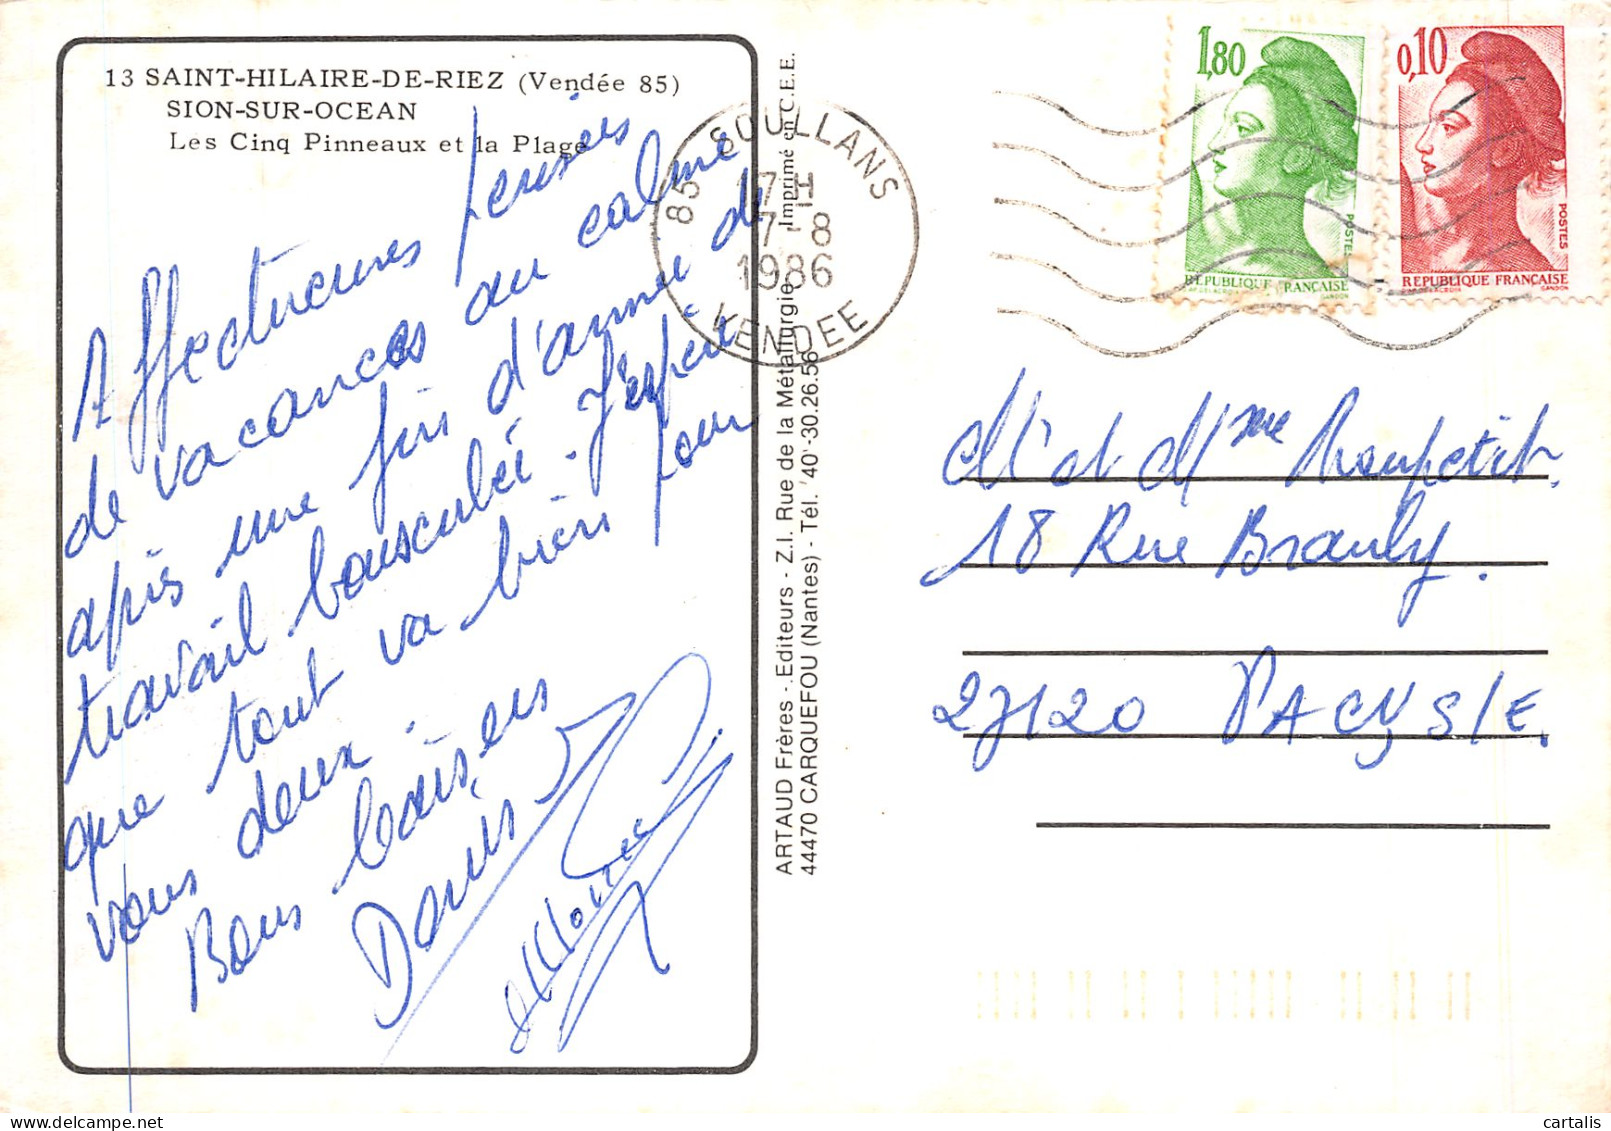 13 SAINT-HILAIRE-DE-RIEZ (Vendée 85)
SION-SUR-OCEAN
Les Cinq Pinneaux et la Plage
Affectueuses pensées
de vacances au calme
après une fin d'année de
travail bousculée. J'espère
que tout va bien pour
vous deux.
Bons baisers
Denis
ARTAUD Frères - Editeurs - Z.I. Rue de la Métallurgie Imprimé en C.E.E.
44470 CARQUEFOU (Nantes) - Tél. (40) 30.26.56
85 SOULLANS
17H
7-8
1986
VENDEE
1,80
POSTES
REPUBLIQUE FRANÇAISE
GANDON
0,10
POSTES
REPUBLIQUE FRANÇAISE
GANDON
Mr et Mme
18 Rue Branly.
27120 PACY S/E.
cartalis